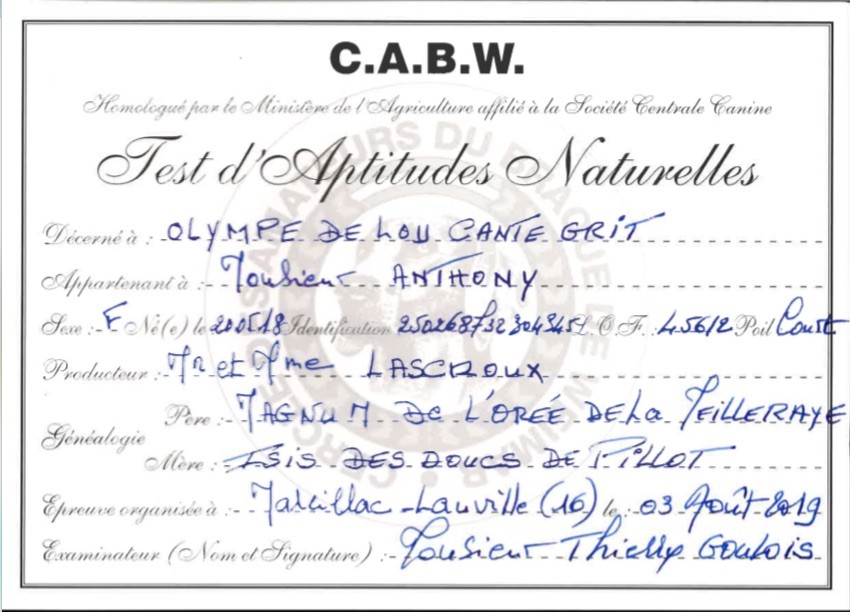 C.A.B.W.
Homologué par le Ministère de l'Agriculture affilié à la Société Centrale Canine
Test d'Aptitudes Naturelles
Décerné à : OLYMPE DE LOU CANTE GRIT
Appartenant à : Monsieur ANTHONY
Sexe : F Né(e) le 200518 Identification 250268732304345 L.O.F. : 45612 Poil Court
Producteur : Mr et Mme LASCROUX
Généalogie
Père : MAGNUM DE L'ORÉE DE La MEILLERAYE
Mère : ISIS DES DOUCS DE PILLOT
Epreuve organisée à : Marcillac-Lanville (16) le : 03 Août 2019
Examinateur (Nom et Signature) : Monsieur Thierry GOULOIS
CERCLE DES AMATEURS DU BRAQUE DE WEIMAR